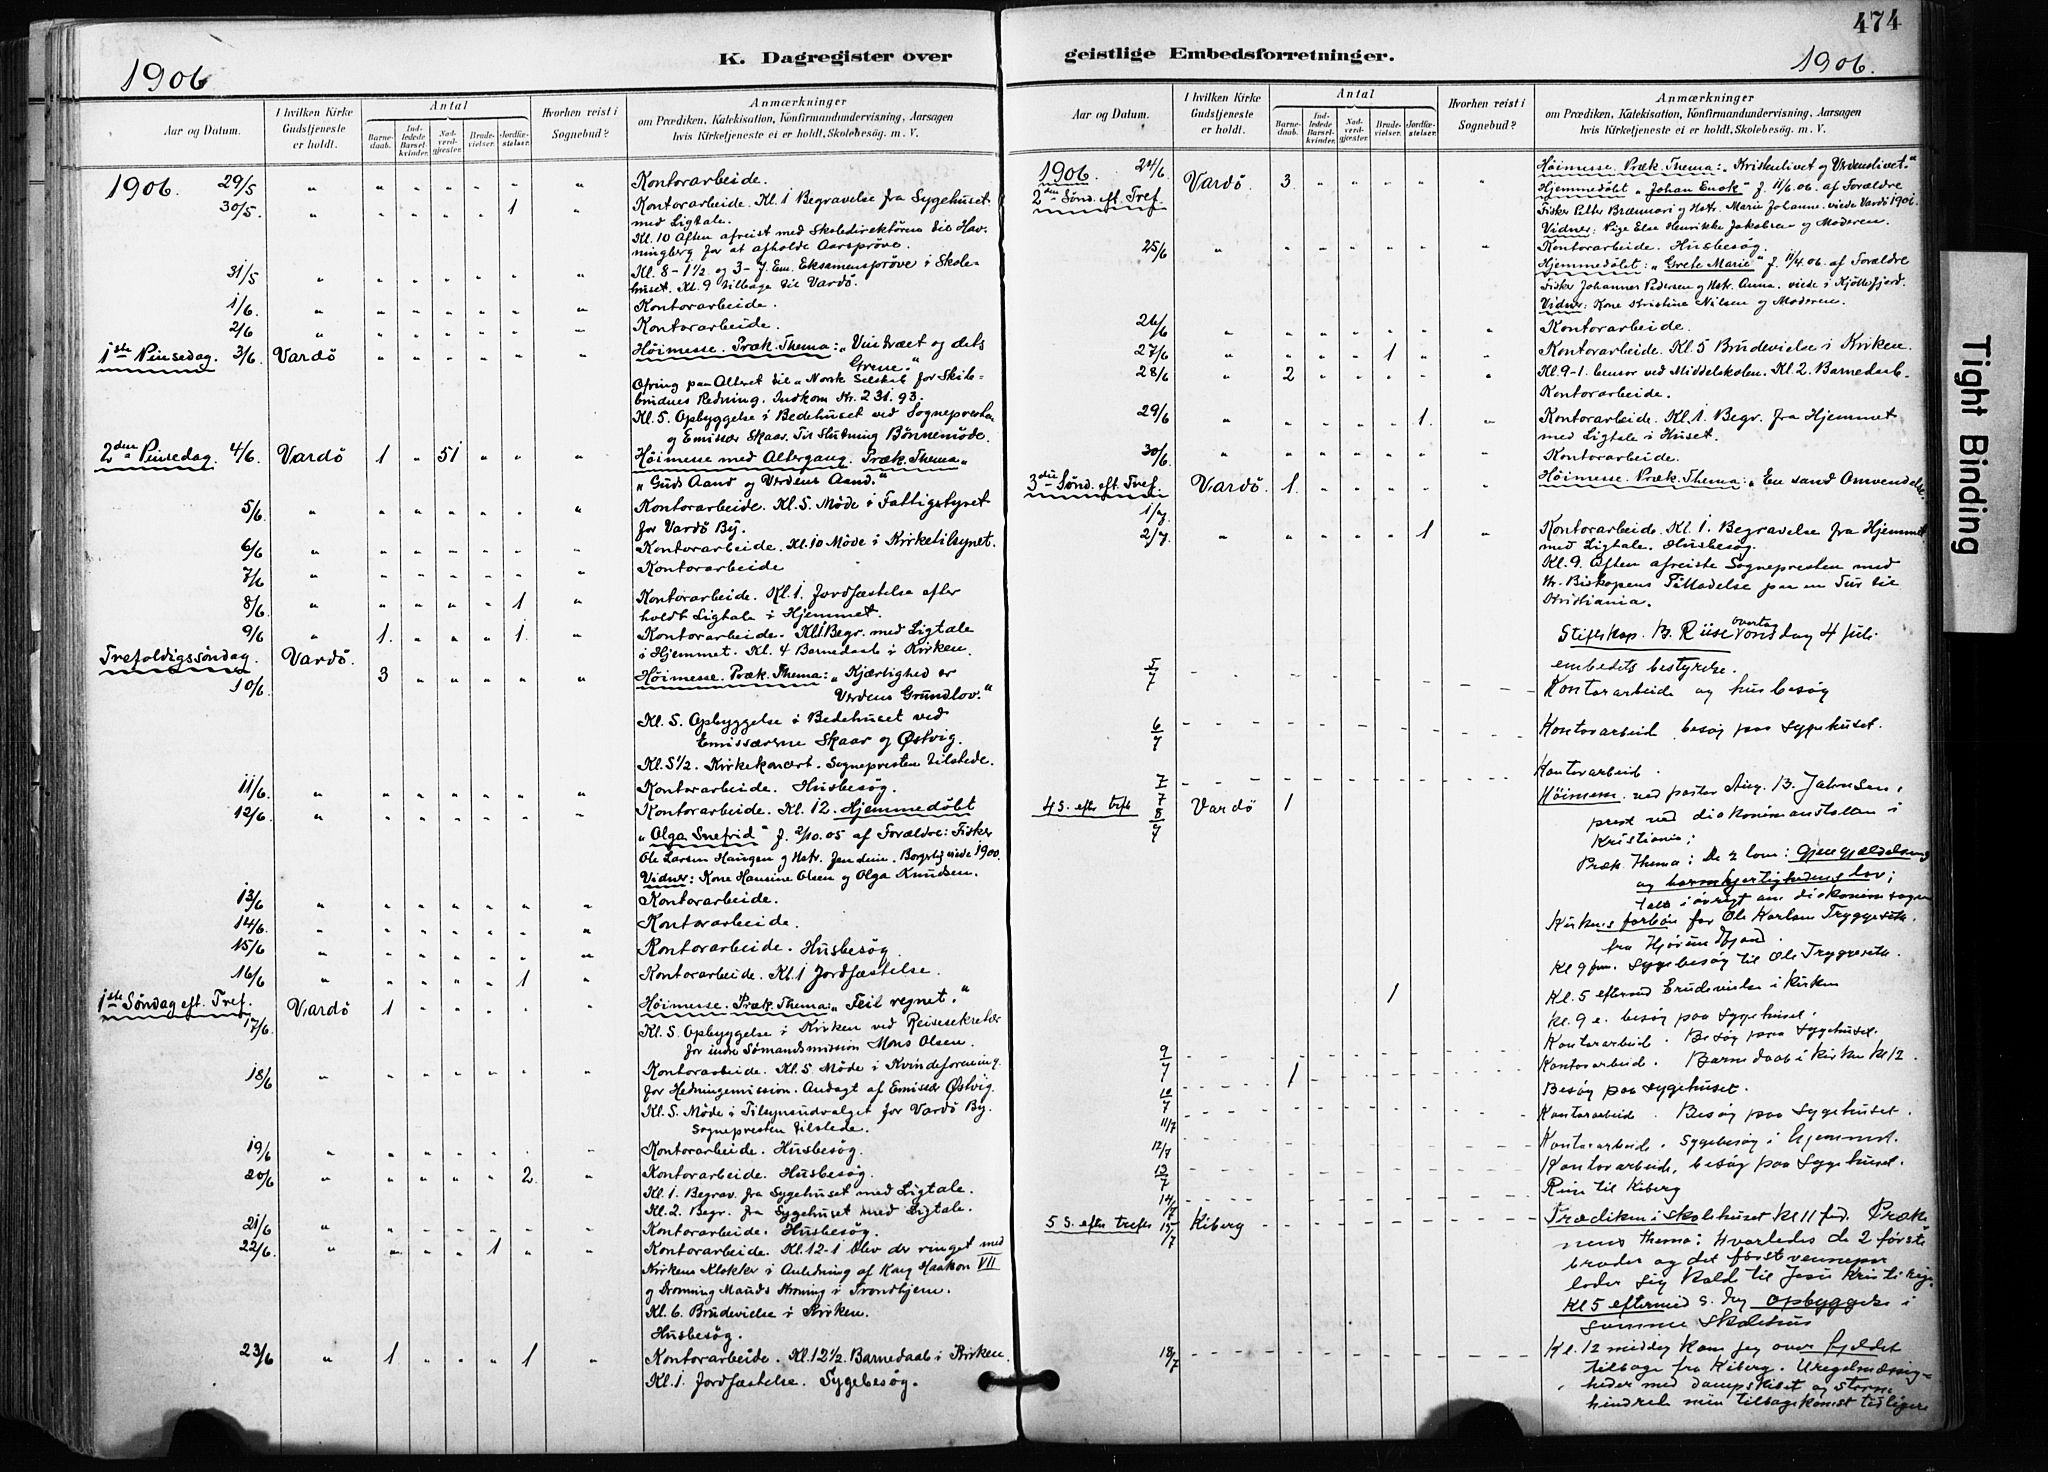 474
K. Dagregister over geistlige Embedsforretninger.
1906
1906.
Aar og Datum.
I hvilken Kirke Gudstjeneste er holdt.
Antal
Barnedaab.
Indledede Barselkvinder.
Nadverdgjester.
Brudevielser.
Jordfæstelser.
Hvorhen reist i Sognebud?
Anmærkninger
om Prædiken, Katekisation, Konfirmandundervisning, Aarsagen
hvis Kirketjeneste ei er holdt, Skolebesøg. m. V.
1906. 29/5 " " " " " " " Kontorarbeide.
30/5 " " " " " 1 " Kontorarbeide. Kl. 1 Begravelse fra Sygehuset
med Ligtale.
Kl. 10 Aften afreist med Skoledirektøren til Hav-
ningberg for at afholde Aarsprøve.
31/5 " " " " " " " Kl. 8 - 1½ og 3 - 7 Em. Eksamensprøve i Skole-
huset. Kl. 9 tilbage til Vardö.
1/6 " " " " " " " Kontorarbeide.
2/6 " " " " " " " Kontorarbeide.
1ste Pinsedag. 3/6 Vardö Höimesse. Præk. Thema: "Vintræet og dets
Grene."
Ofring paa Altret til "Norsk Selskab for Skib-
brudnes Redning. Indkom Kr. 231.93.
Kl. 5. Opbyggelse i Bedehuset ved Sognepresten
og Emissær Skaar. Til Slutning Bönnemöde.
2den Pinsedag 4/6. Vardö 1 " 51 " " " Höimesse med Altergang. Præk. Thema "
"Guds Aand og Verdens Aand."
5/6. " " " " " " " Kontorarbeide. Kl. 5. Möde i Fattigstyret
for Vardö By.
6/6 " " " " " " " Kontorarbeide. Kl. 10 Möde i Kirketilsynet.
7/6 " " " " " " " Kontorarbeide
8/6. " " " " " 1 " Kontorarbeide. Kl. 1. Jordfæstelse efter
holdt Ligtale i Hjemmet.
9/6 " 1. " " " 1. " Kontorarbeide. Kl 1 Begr. med Ligtale
i Hjemmet. Kl. 4 Barnedaab i Kirken.
Trefoldigssöndag. 10/6. Vardö. 3 " " " " " Höimesse. Præk. Thema: "Kjærlighed er
Verdens Grundlov."
Kl. 5. Opbyggelse i Bedehuset ved
Emissærerne Skaar og Østvig.
Kl. 5 1/2. Kirkekoncert. Sognepresten tilstede.
11/6. " " " " " " " Kontorarbeide. Husbesög.
12/6. " " " " " " " Kontorarbeide. Kl. 12. Hjemmedöbt
"Olga Snefrid" f. 2/10.05 af Forældre: Fisker
Ole Larsen Haugen og Hstr. Jendine. Borgerlig viede 1900.
Vidner: Kone Hansine Olsen og Olga Knudsen.
13/6 " " " " " " " Kontorarbeide.
14/6. " " " " " " " Kontorarbeide.
15/6 " " " " " " " Kontorarbeide. Husbesög.
16/6 " " " " " 1 " Kontorarbeide. Kl. 1 Jordfæstelse.
1ste Söndag eft. Tref. 17/6. Vardö 1 " " " " Höimesse. Præk. Thema: "Feil regnet."
Kl. 5. Opbyggelse i Kirken ved Reisesekretær
for indre Sömandsmission Mons Olsen.
18/6 " " " " " " " Kontorarbeide. Kl. 5 Möde i Kvindeforening
for Hedningemission. Andagt af Emissær Østvig.
Kl. 5. Möde i Tilsynsudvalget for Vardö By.
Sognepresten tilstede.
19/6 " " " " " " " Kontorarbeide. Husbesög.
20/6 " " " " " 2. " Kontorarbeide. Husbesög.
Kl. 1. Begrav. fra Sygehuset med Ligtale.
Kl. 2. Begr. fra Sygehuset med Ligtale.
21/6 " " " " " " " Kontorarbeide. Husbesög.
22/6. " " " " 1 " " Kontorarbeide. Kl. 12-1 blev der ringet med
Kirkens Klokker i Anledning af Kong Haakon VII
og Dronning Mauds Kroning i Trondhjem.
Kl. 6. Brudevielse i Kirken.
Husbesög.
23/6 " 1 " " " 1 " Kontorarbeide. Kl. 12½. Barnedaab i Kirken.
Kl. 1. Jordfæstelse. Sygebesög.
Aar og Datum.
I hvilken Kirke Gudstjeneste er holdt.
Antal
Barnedaab.
Indledede Barselkvinder.
Nadverdgjester.
Brudevielser.
Jordfæstelser.
Hvorhen reist i Sognebud?
Anmærkninger
om Prædiken, Katekisation, Konfirmandundervisning, Aarsagen
hvis Kirketjeneste ei er holdt, Skolebesøg. m. V.
1906. 24/6 Vardö 3 " " " " " Höimesse. Præk. Thema: "Kristenlivet og Verdenslivet."
2den Sönd. eft. Tref. Hjemmedöbt "Johan Enok" f. 11/6.06. af Forældre
Fisker Petter Brænnari og Hstr. Marie Johanne. viede Vardö 1901.
Vidner: Pige Else Henrikke Jakobsen og Moderen.
25/6 " " " " " " " Kontorarbeide. Husbesög.
Hjemmedöbt: "Grete Marie" f. 11/4.06. af Forældre
Fisker Johannes Pedersen og Hstr. Anna. viede i Kjöllefjord.
Vidner: Kone Kristine Nilsen og Moderen.
26/6 " " " " " " " Kontorarbeide.
27/6 " " " " 1 " " Kontorarbeide. Kl. 5 Brudevielse i Kirken.
28/6 " 2 " " " " " Kl. 9-1. Censor ved Middelskolen. Kl. 2. Barnedaab.
Kontorarbeide.
29/6 " " " " " 1. " Kontorarbeide. Kl. 1. Begr. fra Hjemmet
med Ligtale i Huset.
30/6 " " " " " " " Kontorarbeide.
3die Sönd. eft. Tref. 1/7. Vardö. 1. " " " " " Höimesse. Præk. Thema: "En sand Omvendelse.
2/7. " " " " " 1 " Kontorarbeide. Kl. 1. Begravelse fra Hjemmet
med Ligtale. Husbesög.
Kl. 9. Aften afreiste Sognepresten med
Hr. Biskopens Tilladelse paa en Tur til
Kristiania.
Stiftskap. B. Riise overtog onsdag 4 juli
embedets bestyrelse.
5/7 Kontorarbeide og husbesög
6/7 Kontorarbeid besög paa sygehuset.
7/7 Kontorarbeid.
4 S. efter tref. 8/7 Vardö 1 Höimesse ved pastor Aug. B. Jahnsen,
prest ved diakonianstalten i
Kristiania;
Præk Thema: De 2 love: gjengjældelsens
og barmhjertighedens lov;
talte iövrigt om diakonisagen
Kirkens forbön for Ole Karlsen Tryggeseth.
fra Hjörundfjord.
Kl 9 fm. Sygebesög til Ole Tryggeseth.
1 Kl. 5 eftermd Brudevielse i kirken
kl. 9 e. besög paa Sygehuset.
9/7 Kontorarbeid. Besög paa Sygehuset.
1 Kontorarbeid. Barnedaab i kirken kl 12
10/7 Besög paa Sygehuset.
11/7 Kontorarbeid. Besög paa Sygehuset.
12/7 Kontorarbeid. Sygebesög i hjemmet.
13/7 Kontorarbeid, besög paa Sygehuset.
14/7 Reise til Kiberg
5 S. efter trefo 15/7 Kiberg Prædiken i skolehuset kl 11 fmd. Præke
nens thema: hvorledes de 2 förste
brödre og det förste vennepar
loder sig kald til Jesu Kristi rige.
Kl 5 eftermid s. dg Opbyggelse i
samme skolehus
18/7 Kl. 12 middag kom jeg over fjeldet
tilbage fra Kiberg. Uregelmæssig-
heder med dampskibet og storm
hindrede min tilbagekomst tidligere
Tight Binding